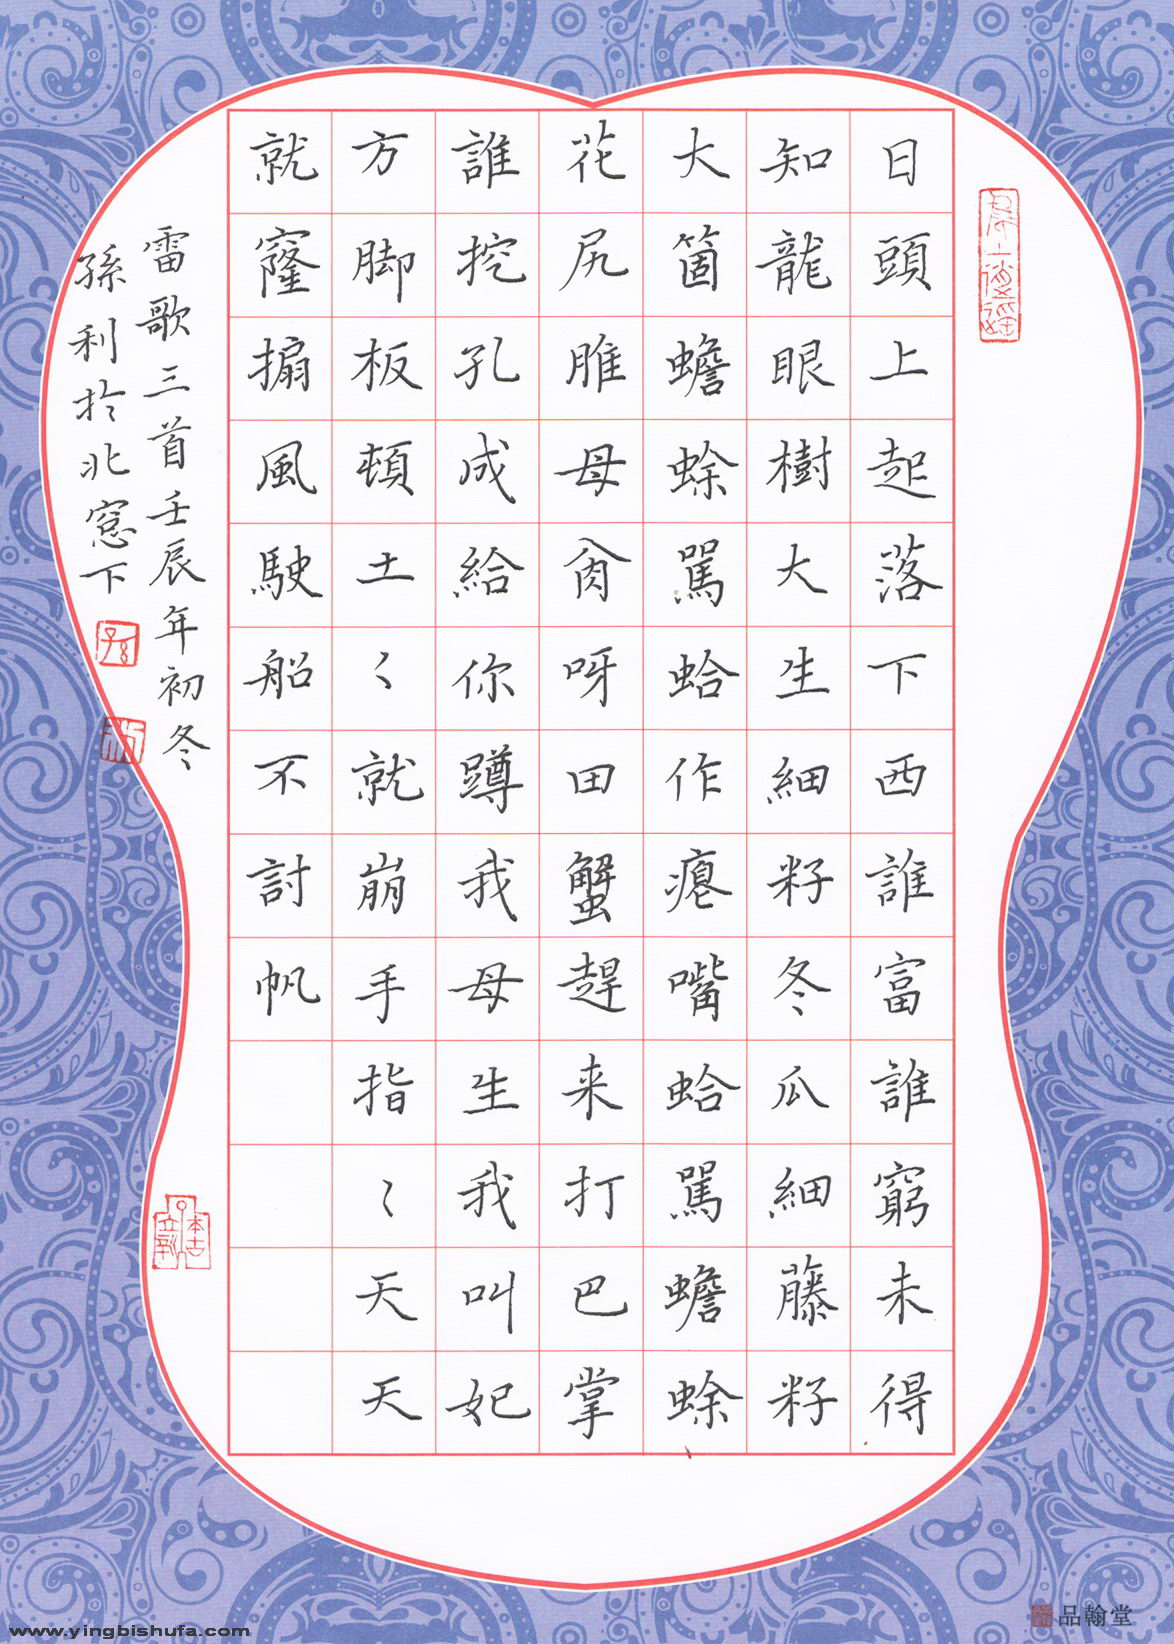 日頭上起落下西誰富誰窮未得
知龍眼樹大生細籽冬瓜細藤籽
大箇蟾蜍罵蛤作瘪嘴蛤罵蟾蜍
花尻脽母肏呀田蟹趕来打巴掌
誰挖孔成給你蹲我母生我叫妃
方脚板頓土〻就崩手指〻天天
就窿搧風駛船不討帆
雷歌三首壬辰年初冬
孫利於北窓下
品翰堂
www.yingbishufa.com